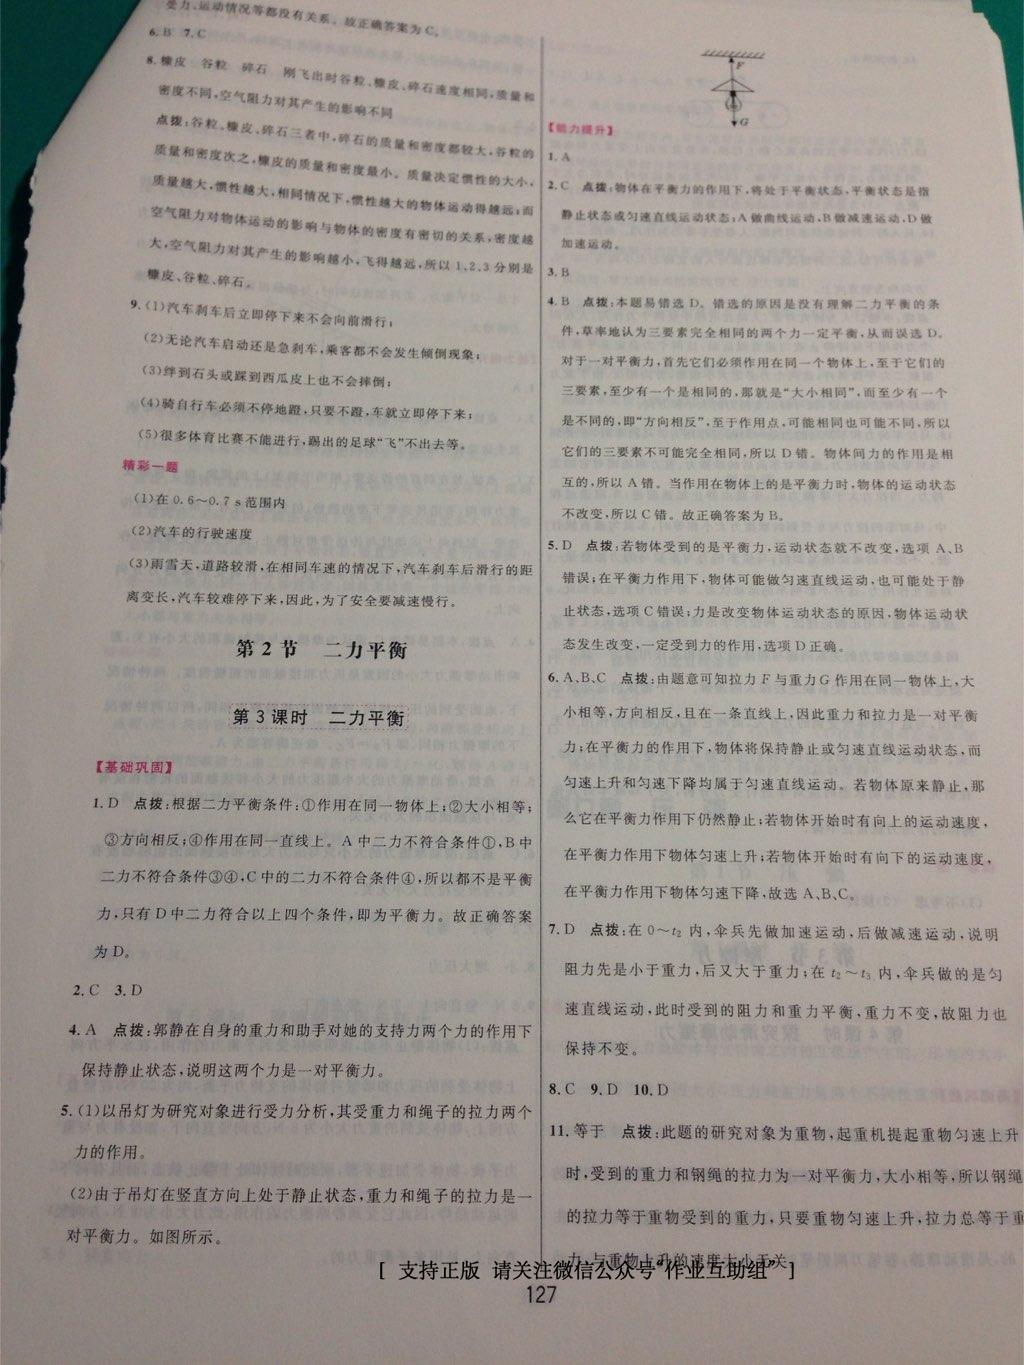 受力、运动情况等都没有关系。故正确答案为C。
6.B 7.C
8.糠皮 谷粒 碎石 刚飞出时谷粒、糠皮、碎石速度相同,质量和
密度不同,空气阻力对其产生的影响不同
点拨:谷粒、糠皮、碎石三者中,碎石的质量和密度都较大,谷粒的
质量和密度次之,糠皮的质量和密度最小。质量决定惯性的大小,
质量越大,惯性越大,相同情况下,惯性越大的物体运动得越远;而
空气阻力对物体运动的影响与物体的密度有密切的关系,密度越
大,空气阻力对其产生的影响越小,飞得越远,所以1、2、3分别是
糠皮、谷粒、碎石。
9.(1)汽车刹车后立即停下来不会向前滑行;
(2)无论汽车启动还是急刹车,乘客都不会发生倾倒现象;
(3)绊到石头或踩到西瓜皮上也不会摔倒;
(4)骑自行车必须不停地蹬,只要不蹬,车就立即停下来;
(5)很多体育比赛不能进行,踢出的足球“飞”不出去等。
精彩一题
(1)在0.6～0.7 s范围内
(2)汽车的行驶速度
(3)雨雪天,道路较滑,在相同车速的情况下,汽车刹车后滑行的距
离变长,汽车较难停下来,因此,为了安全要减速慢行。
第2节 二力平衡
第3课时 二力平衡
【基础巩固】
1.D 点拨:根据二力平衡条件:①作用在同一物体上;②大小相等;
③方向相反;④作用在同一直线上。A中二力不符合条件①,B中
二力不符合条件③④,C中的二力不符合条件④,所以都不是平衡
力,只有D中二力符合以上四个条件,即为平衡力。故正确答案
为D。
2.C 3.D
4.A 点拨:郭静在自身的重力和助手对她的支持力两个力的作用下
保持静止状态,说明这两个力是一对平衡力。
5.(1)以吊灯为研究对象进行受力分析,其受重力和绳子的拉力两个
力的作用。
(2)由于吊灯在竖直方向上处于静止状态,重力和绳子的拉力是一
对平衡力。如图所示。
F
G
【能力提升】
1.A
2.C 点拨:物体在平衡力的作用下,将处于平衡状态,平衡状态是指
静止状态或匀速直线运动状态;A做曲线运动,B做减速运动,D做
加速运动。
3.B
4.B 点拨:本题易错选D。错选的原因是没有理解二力平衡的条
件,草率地认为三要素完全相同的两个力一定平衡,从而误选D。
对于一对平衡力,首先它们必须作用在同一个物体上,至于它们的
三要素,至少有一个是相同的,那就是“大小相同”,而至少有一个
是不同的,即“方向相反”,至于作用点,可能相同也可能不同,所以
它们的三要素不可能完全相同,所以D错。物体间力的作用是相
互的,所以A错。当作用在物体上的是平衡力时,物体的运动状态
不改变,所以C错。故正确答案为B。
5.D 点拨:若物体受到的是平衡力,运动状态就不改变,选项A、B
错误;在平衡力作用下,物体可能做匀速直线运动,也可能处于静
止状态,选项C错误;力是改变物体运动状态的原因,物体运动状
态发生改变,一定受到力的作用,选项D正确。
6.A、B、C 点拨:由题意可知拉力F与重力G作用在同一物体上,大
小相等,方向相反,且在一条直线上,因此重力和拉力是一对平衡
力;在平衡力的作用下,物体将保持静止或匀速直线运动状态,而
匀速上升和匀速下降均属于匀速直线运动。若物体原来静止,那
么它在平衡力作用下仍然静止;若物体开始时有向上的运动速度,
在平衡力作用下物体匀速上升;若物体开始时有向下的运动速度,
在平衡力作用下物体匀速下降,故选A、B、C。
7.D 点拨:在0～t₂内,伞兵先做加速运动,后做减速运动,说明
阻力先是小于重力,后又大于重力;在t₂～t₃内,伞兵做的是匀
速直线运动,此时受到的阻力和重力平衡,重力不变,故阻力也
保持不变。
8.C 9.D 10.D
11.等于 点拨:此题的研究对象为重物,起重机提起重物匀速上升
时,受到的重力和钢绳的拉力为一对平衡力,大小相等,所以钢绳
的拉力等于重物受到的重力,只要重物匀速上升,拉力总等于重
力,与重物上升的速度大小无关
[ 支持正版 请关注微信公众号“作业互助组” ]
127